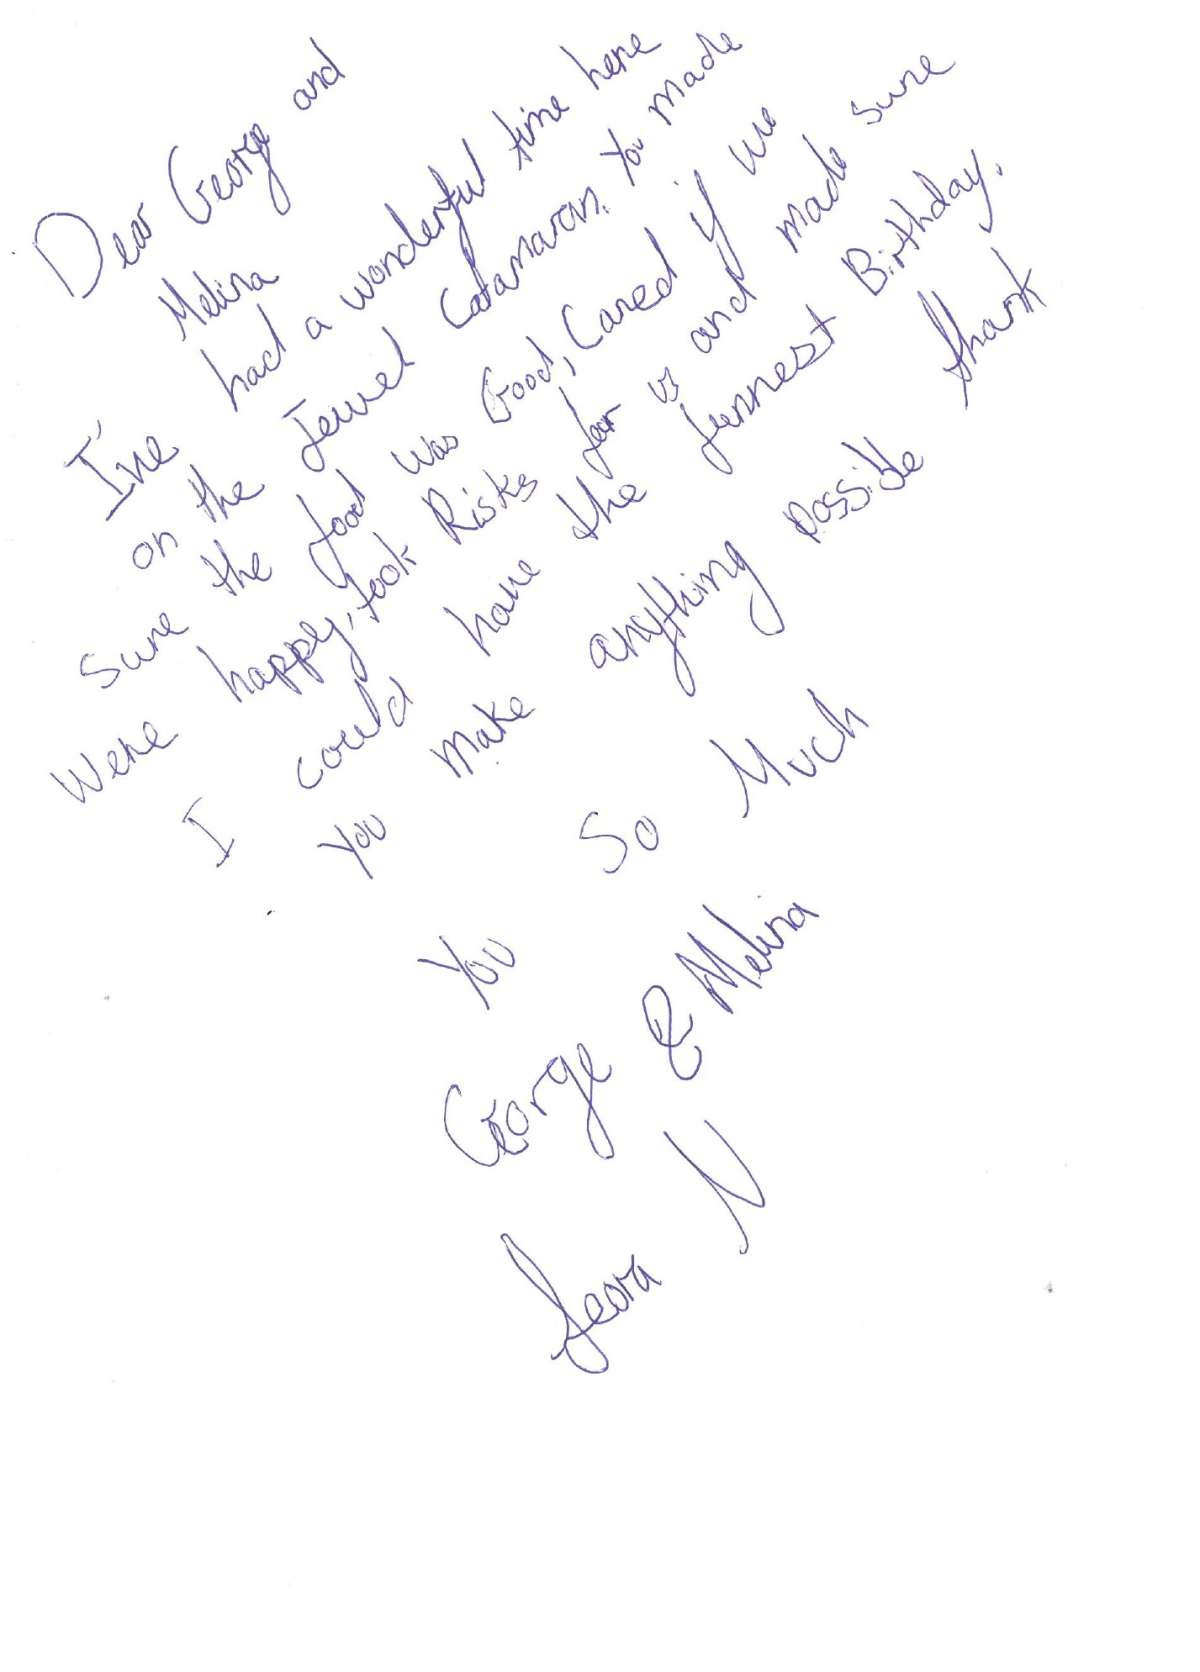 Dear George and
Melina
I've had a wonderful time here
on the Jewel Catamaran. You made
sure the food was Good, Cared if we
were happy, took Risks for us and made sure
I could have the funnest Birthday.
You make anything possible thank
You So Much
George & Melina
Leora N